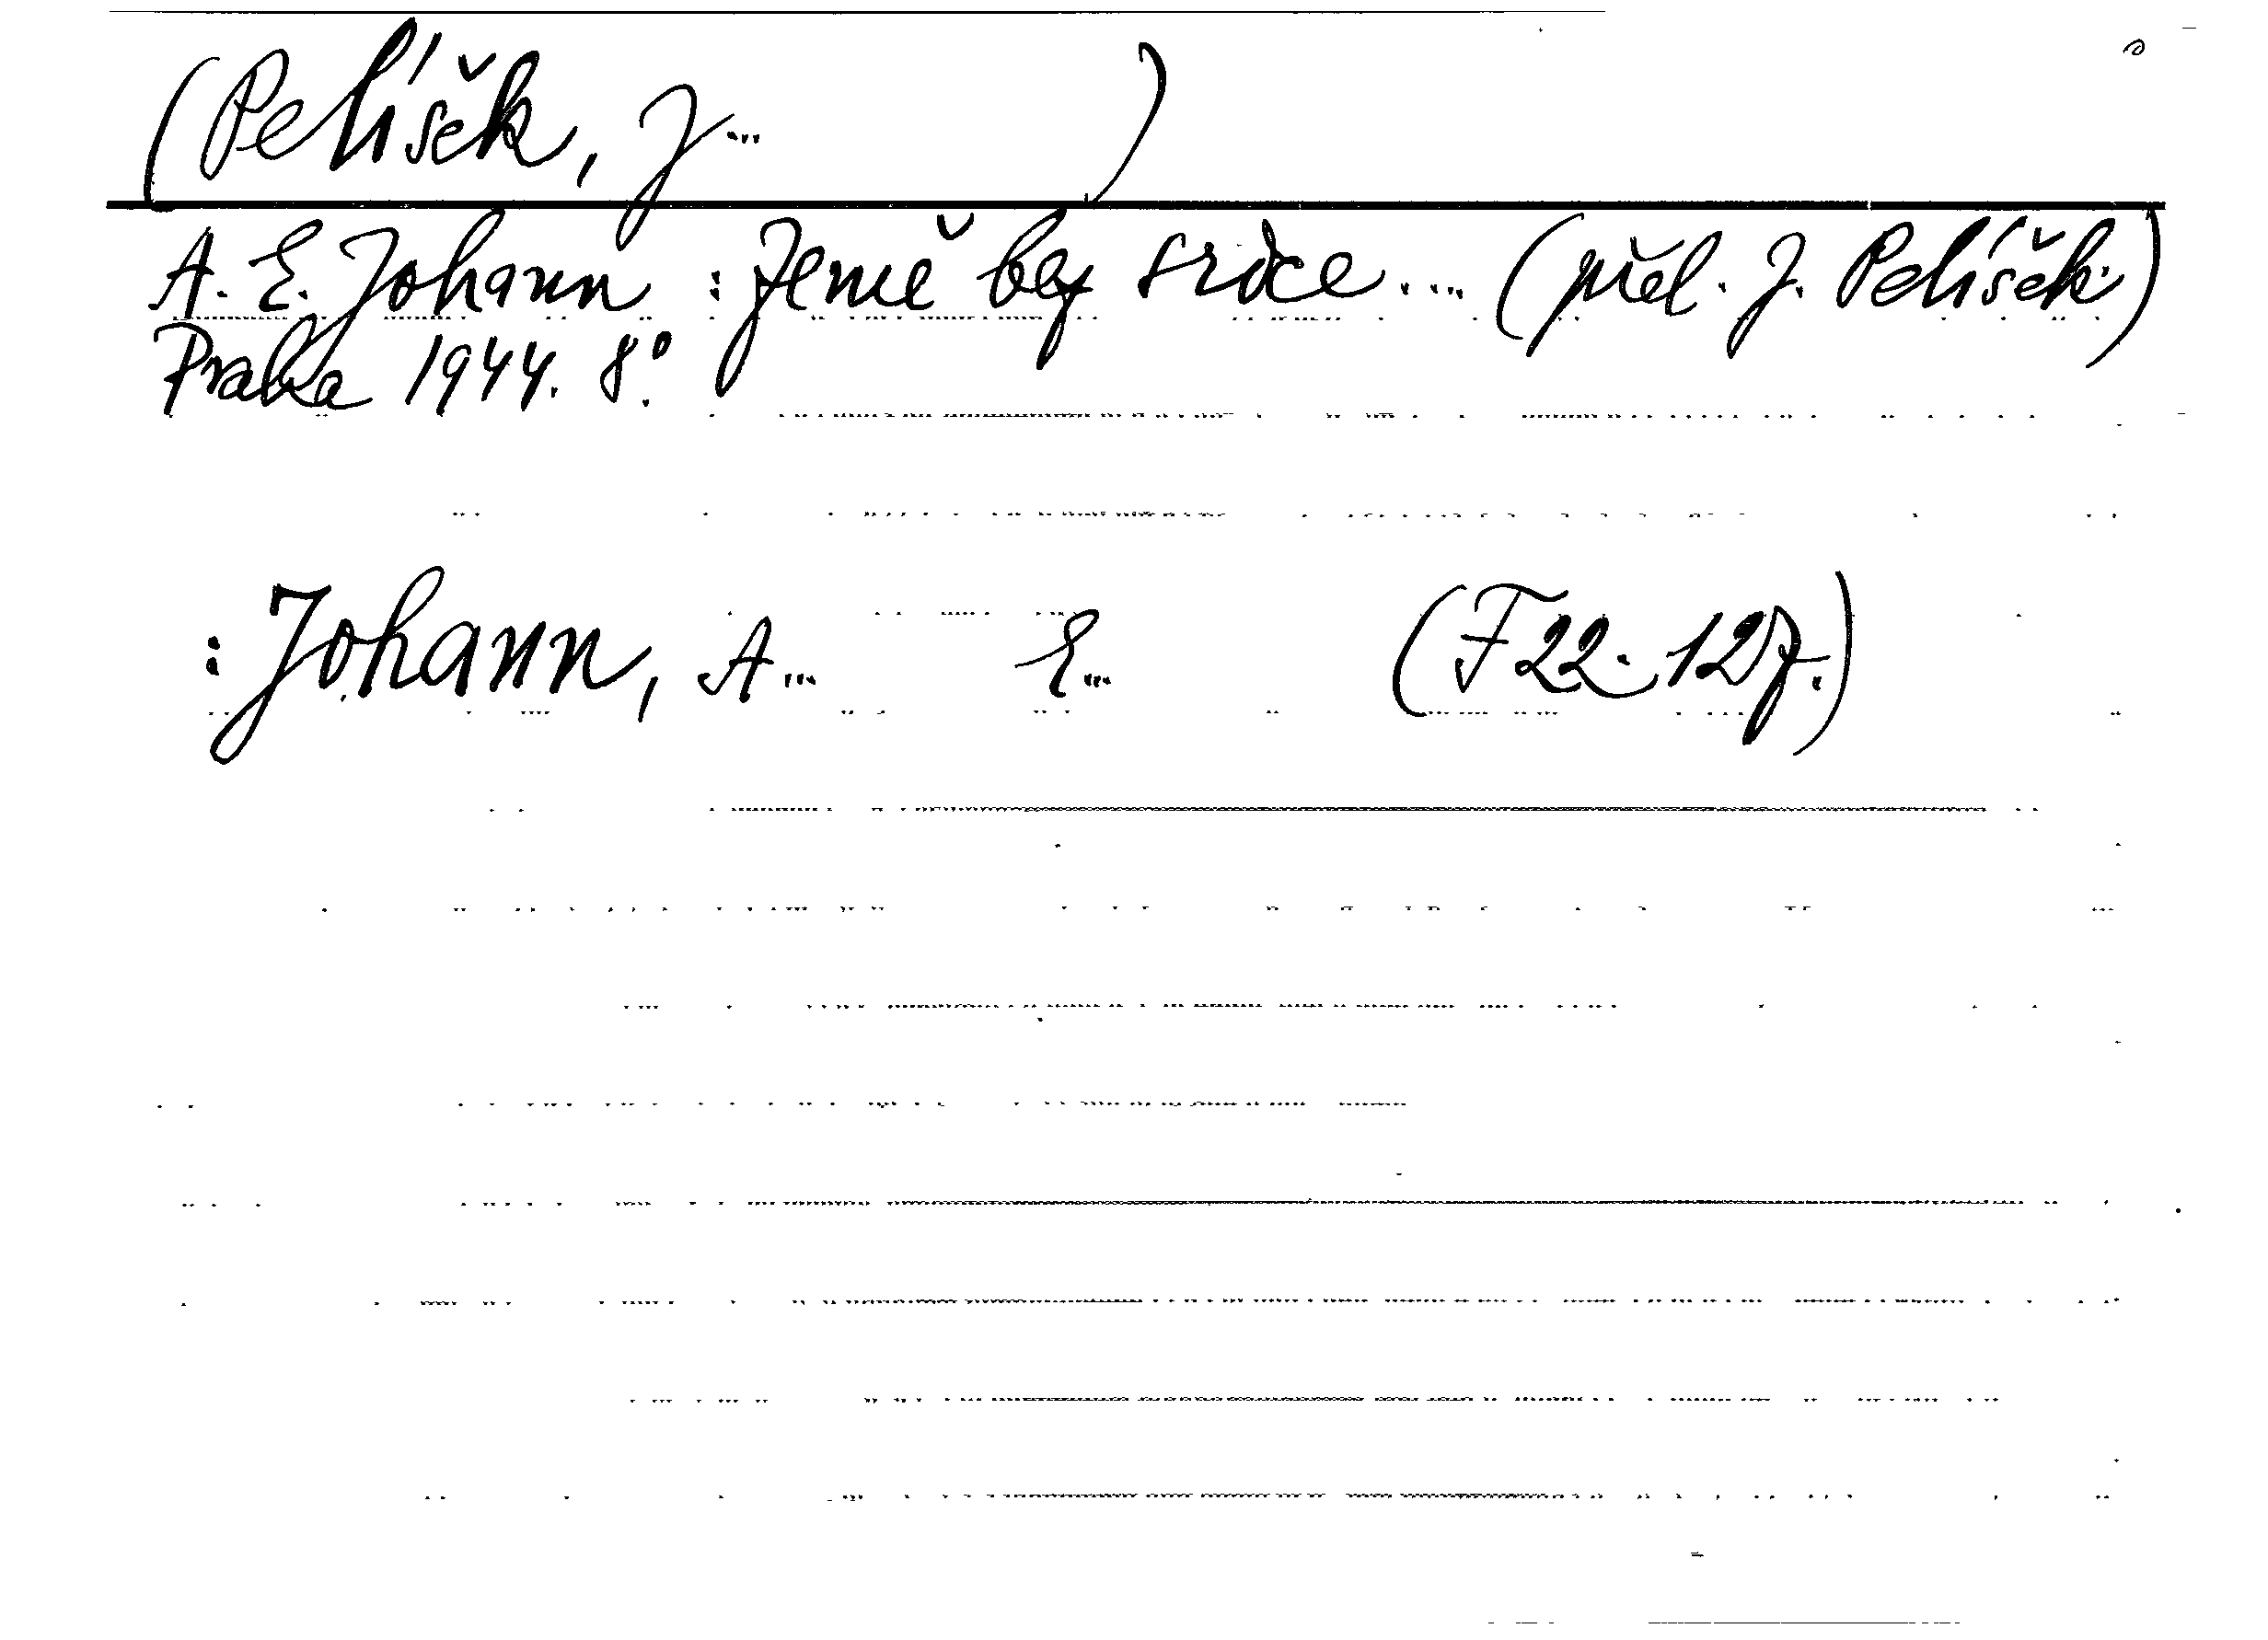 (Pelíšek, J... )
A. E. Johann : Země bez srdce.... (přel. J. Pelíšek.)
Praha 1944. 8°.
: Johann, A... E... (F22.127.)